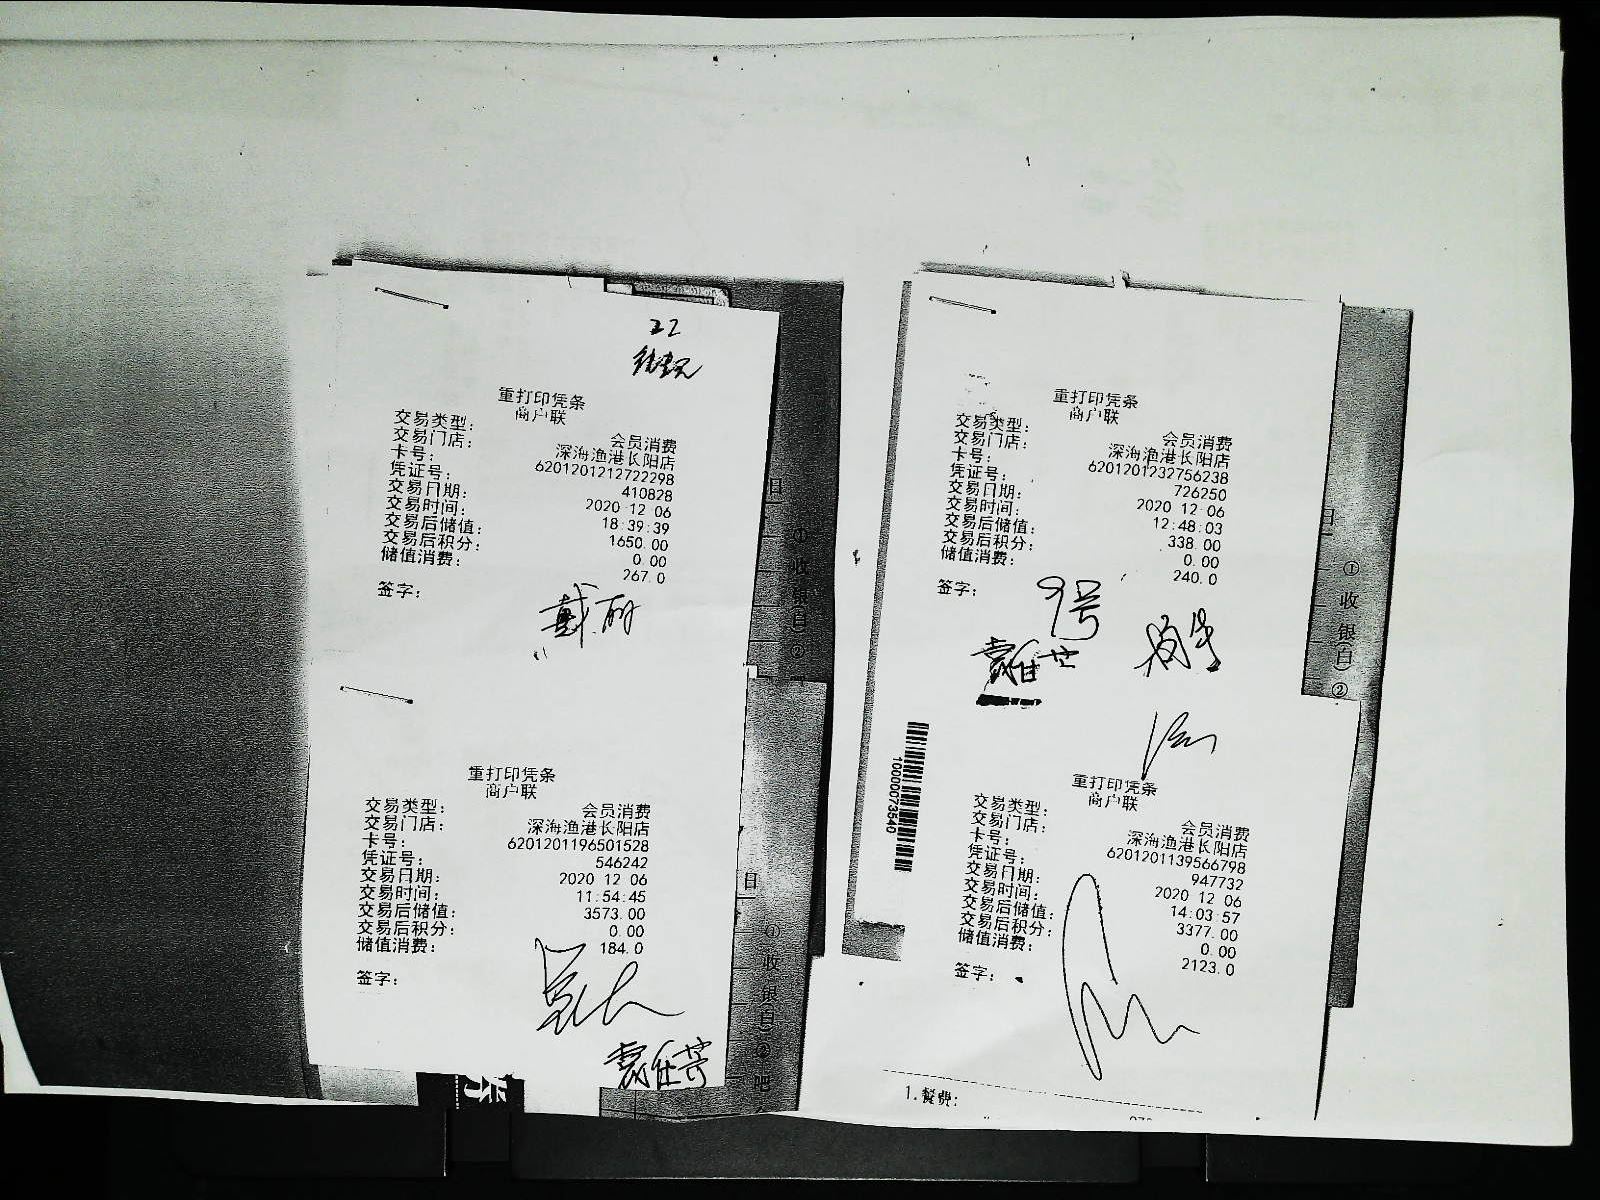 22
重打印凭条
商户联
交易类型: 会员消费
交易门店: 深海渔港长阳店
卡号: 6201201212722298
凭证号: 410828
交易日期: 2020 12 06
交易时间: 18:39:39
交易后储值: 1650.00
交易后积分: 0.00
储值消费: 267.0
签字:
戴丽
重打印凭条
商户联
交易类型: 会员消费
交易门店: 深海渔港长阳店
卡号: 6201201196501528
凭证号: 546242
交易日期: 2020 12 06
交易时间: 11:54:45
交易后储值: 3573.00
交易后积分: 0.00
储值消费: 184.0
签字:
日
①收银(白)②
日
①收银(白)②吧
重打印凭条
商户联
交易类型: 会员消费
交易门店: 深海渔港长阳店
卡号: 6201201232756238
凭证号: 726250
交易日期: 2020 12 06
交易时间: 12:48:03
交易后储值: 338.00
交易后积分: 0.00
储值消费: 240.0
签字:
9号
1000073540
重打印凭条
商户联
交易类型: 会员消费
交易门店: 深海渔港长阳店
卡号: 6201201139566798
凭证号: 947732
交易日期: 2020 12 06
交易时间: 14:03:57
交易后储值: 3377.00
交易后积分: 0.00
储值消费: 2123.0
签字:
1.餐费:
日
①收银(白)②